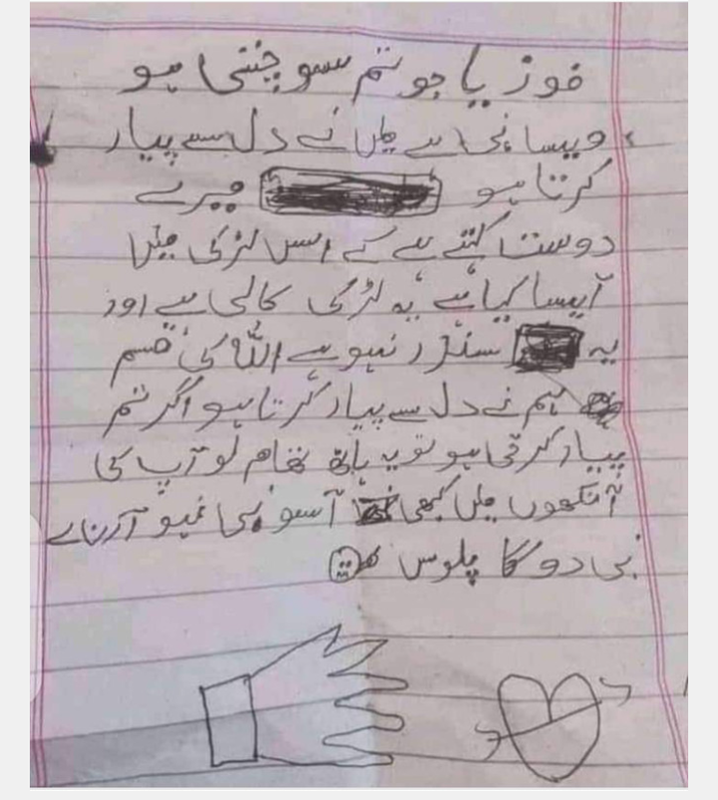 فوزیا جو تم سوچتی ہو
ویسا نہی ہے میں نے دل سے پیار
کرتا ہو میرے
دوست کہتے ہے کے اس لڑکی میں
آیسا کیا ہے یہ لڑکی کالی ہے اور
یہ سنڈر نہو ہے اللہ کی قسم
ہم نے دل سے پیار کرتا ہو اگر تم
پیار کرتی ہو تو یہ ہاتھ تھام لو آپ کی
آنکھوں میں کبھی آسو بی نہیو آنے
بی دو گا پلوس